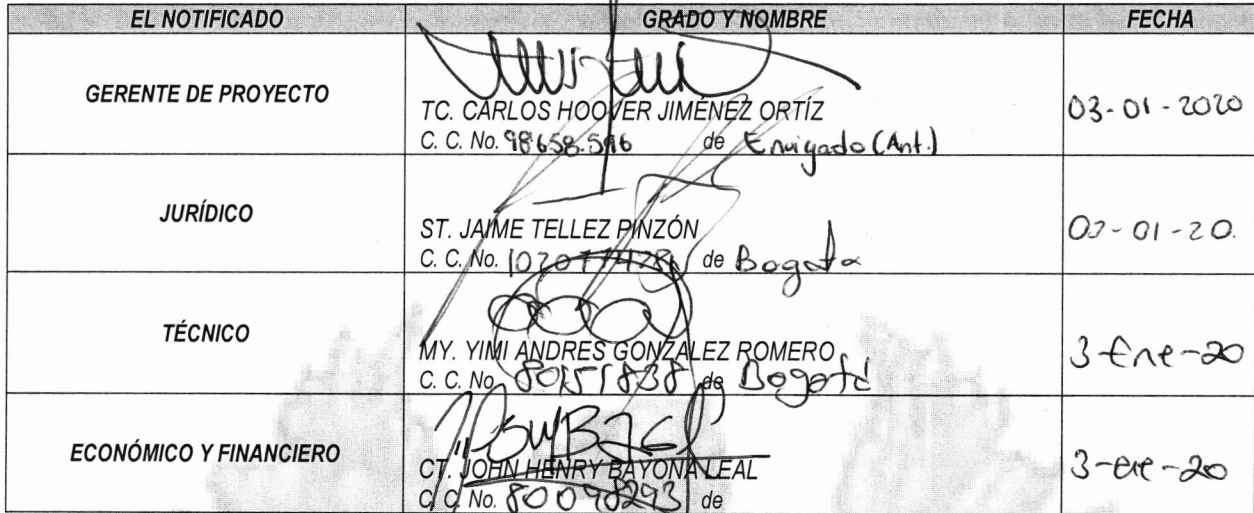 EL NOTIFICADO GRADO Y NOMBRE FECHA
GERENTE DE PROYECTO
TC. CARLOS HOOVER JIMÉNEZ ORTÍZ
C. C. No. 98658.596 de Envigado (Ant.)
03-01-2020
JURÍDICO
ST. JAIME TELLEZ PINZÓN
C. C. No. de Bogota
03-01-20.
TÉCNICO
MY. YIMI ANDRES GONZALEZ ROMERO
C. C. No. 80151838 de Bogotá
3-Ene-20
ECONÓMICO Y FINANCIERO
CT. JOHN HENRY BAYONA LEAL
C. C. No. 80098293 de
3-ene-20